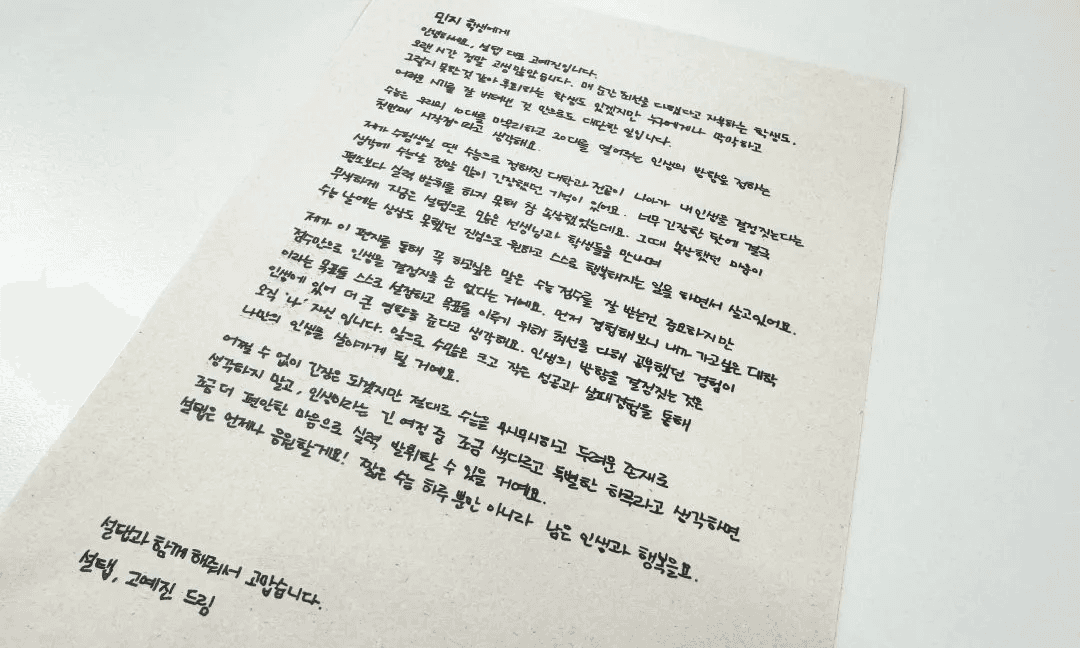 민지 학생에게
안녕하세요, 설탭 대표 고예진입니다.
오랜 시간 정말 고생많았습니다. 매 순간 최선을 다했다고 자부하는 학생도,
그렇지 못한 것 같아 후회하는 학생도 있겠지만 누구에게나 막막하고
어려운 시기를 잘 버텨낸 것 만으로도 대단한 일입니다.
수능은 우리의 10대를 마무리하고 20대를 열어주는 인생의 방향을 정하는
첫번째 시작점이라고 생각해요.
제가 수험생일 땐 수능으로 정해진 대학과 전공이 나아가 내 인생을 결정짓는다는
생각에 수능날 정말 많이 긴장했던 기억이 있어요. 너무 긴장한 탓에 결국
평소보다 실력 발휘를 하지 못해 참 속상했었는데요. 그때 속상했던 마음이
무색하게 지금은 설탭으로 많은 선생님과 학생들을 만나며
수능 날에는 상상도 못했던 진심으로 원하고 스스로 행복해지는 일을 하면서 살고있어요.
제가 이 편지를 통해 꼭 하고싶은 말은 수능 점수를 잘 받는건 중요하지만
점수만으로 인생을 결정지을 순 없다는 거예요. 먼저 경험해보니 내가 가고싶은 대학
이라는 목표를 스스로 설정하고 목표를 이루기 위해 최선을 다해 공부했던 경험이
인생에 있어 더 큰 영향을 준다고 생각해요. 인생의 방향을 결정짓는 것은
오직 '나' 자신 입니다. 앞으로 수많은 크고 작은 성공과 실패경험을 통해
나만의 인생을 살아가게 될 거예요.
어쩔 수 없이 긴장은 되겠지만 절대로 수능을 무시무시하고 두려운 존재로
생각하지 말고, 인생이라는 긴 여정 중 조금 색다르고 특별한 하루라고 생각하면
조금 더 편안한 마음으로 실력 발휘할 수 있을 거예요.
설탭은 언제나 응원할게요! 짧은 수능 하루 뿐만 아니라 남은 인생과 행복을요.
설탭과 함께 해줘서 고맙습니다.
설탭, 고예진 드림